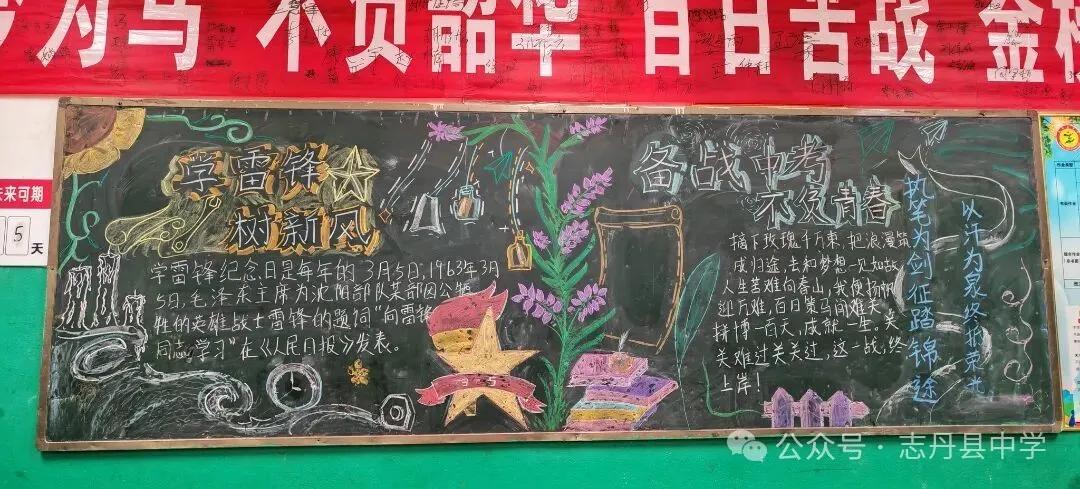 为马 不负韶华 百日苦战 金
未来可期
5 天
学雷锋
树新风
学雷锋纪念日是每年的3月5日,1963年3月
5日,毛泽东主席为沈阳部队某部因公牺
牲的英雄战士雷锋的题词"向雷锋
同志学习"在《人民日报》发表。
3 5
备战中考
不负青春
摘下玫瑰千万束,把浪漫筑
成归途,去和梦想一见如故
人生苦难向春山,我便扬帆
迎万难,百日策马闯难关
拼博一百天,成就一生。关
关难过关关过,这一战,终
上岸!
执笔为剑征踏锦途
以汗为泉终折荣光
公众号·志丹县中学